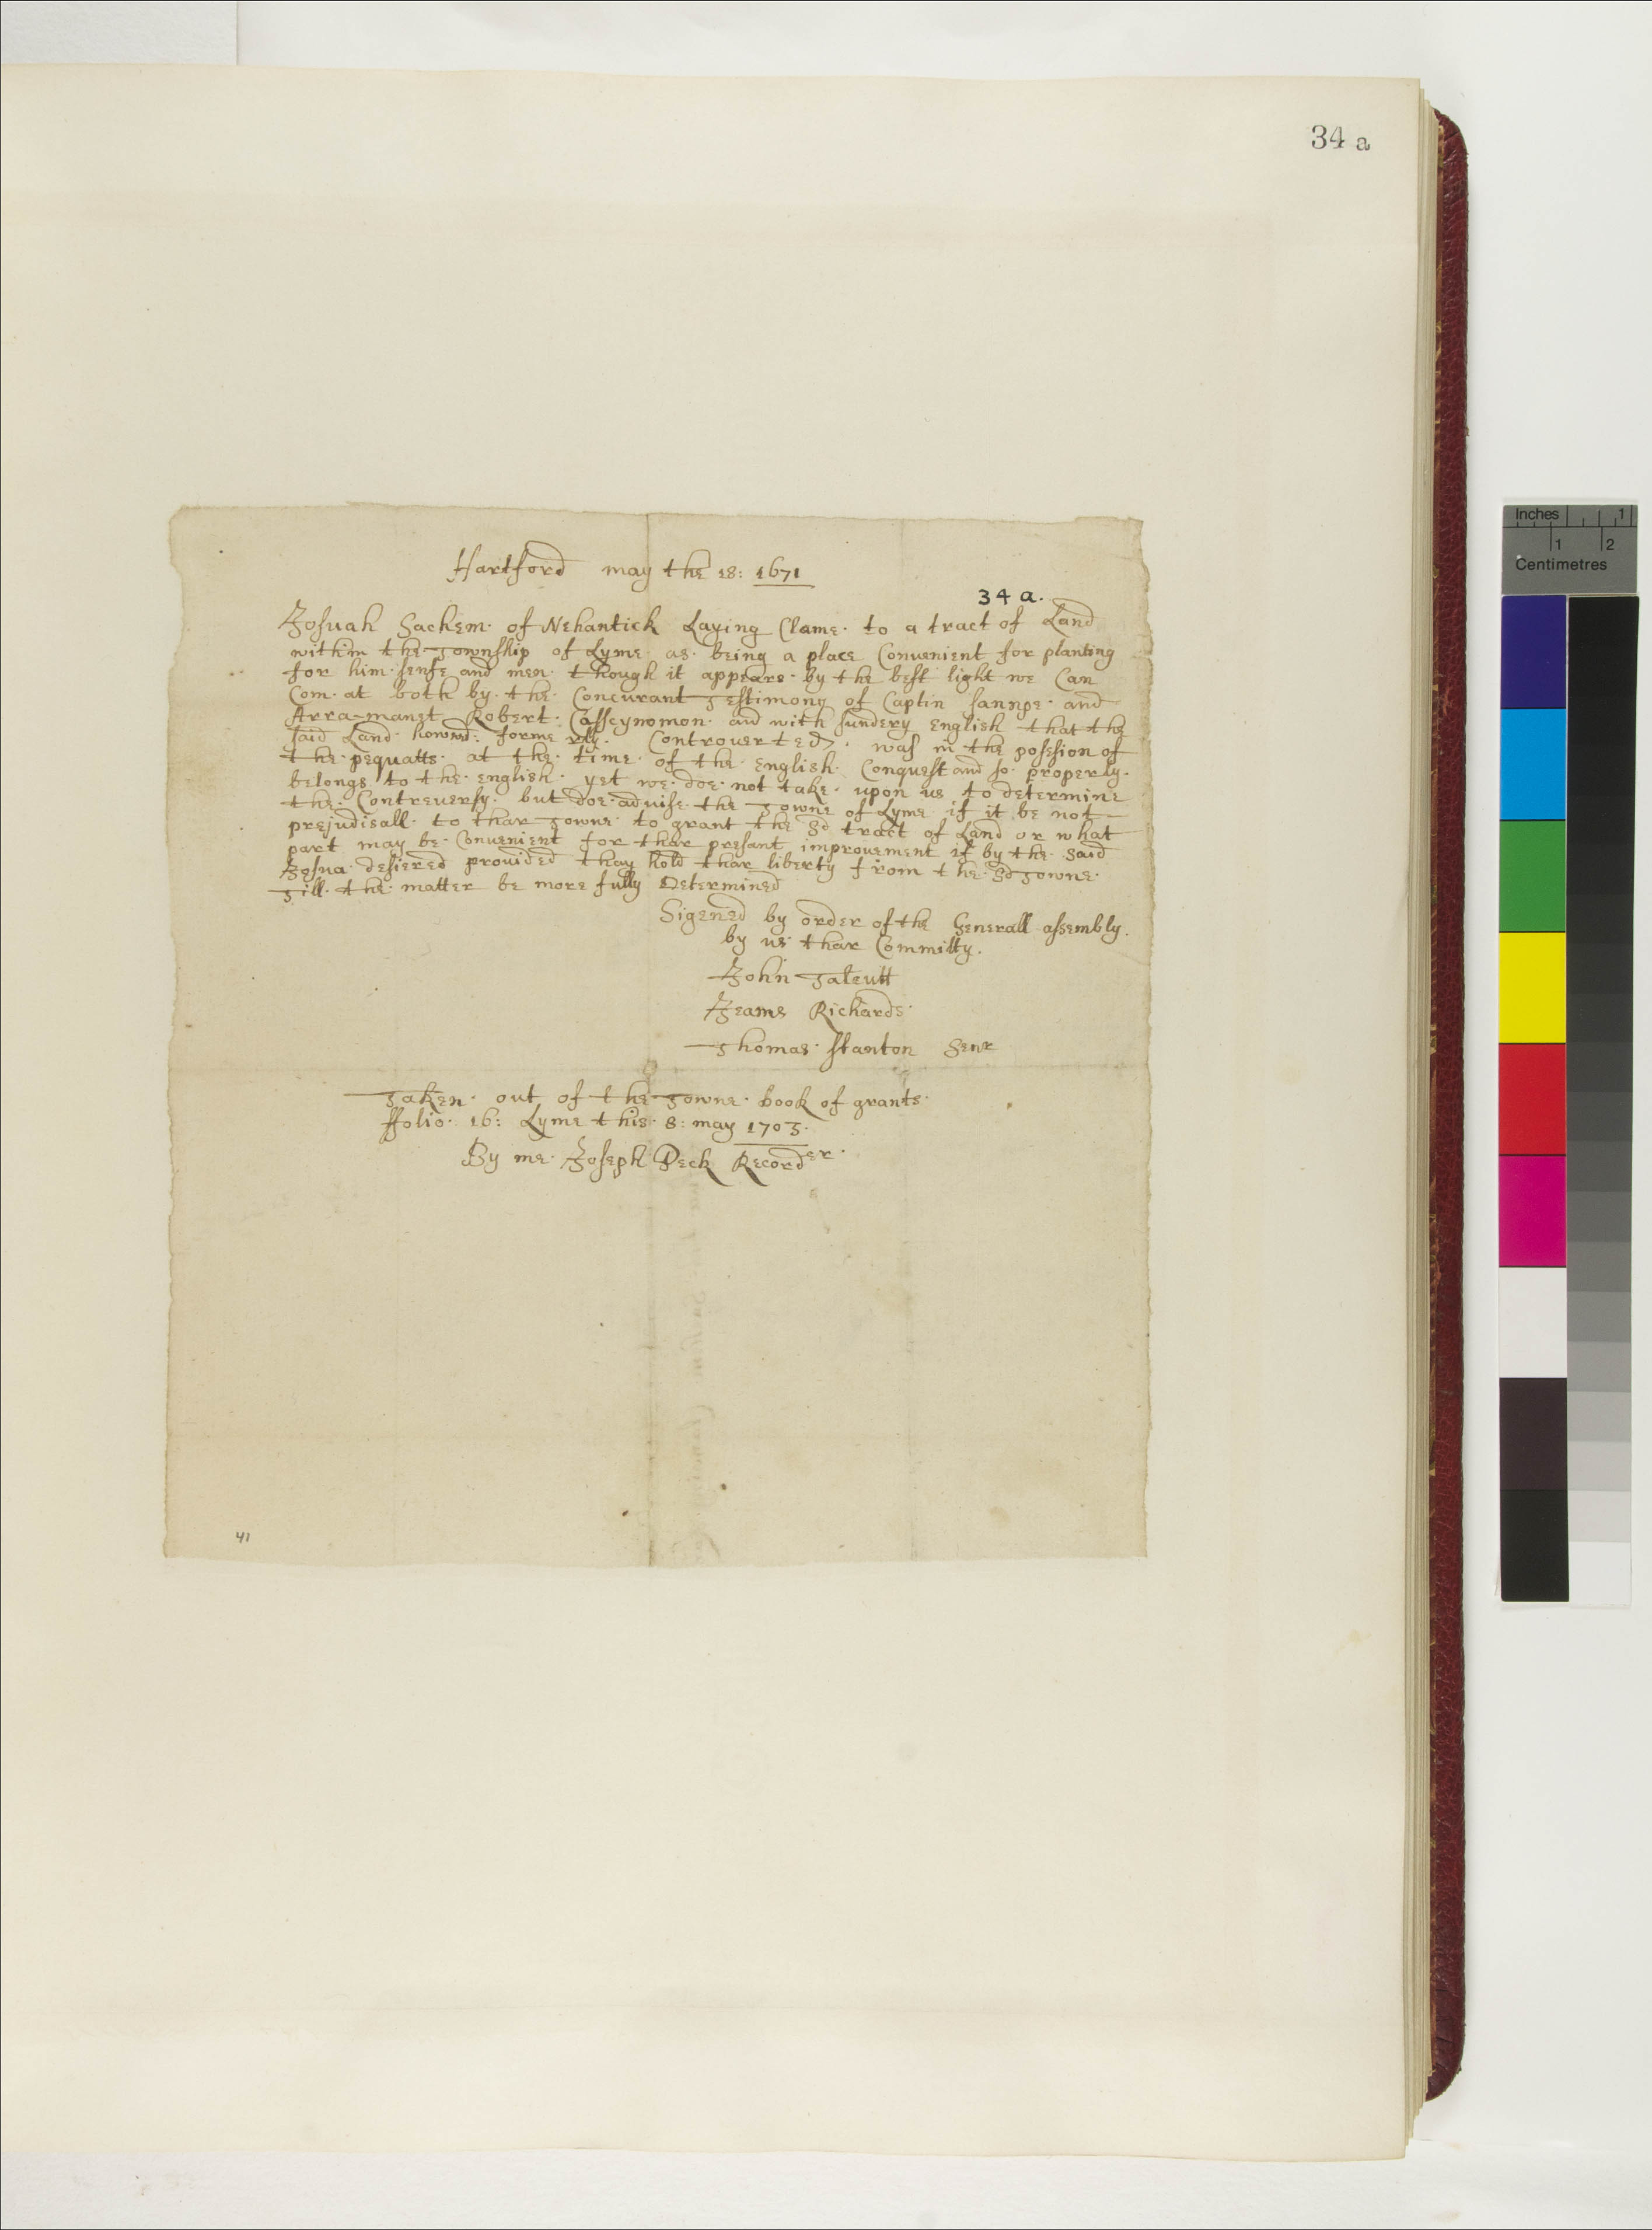 34 a
Hartford may the 18: 1671
34 a.
Josuah Sachem of Nehantick Laying Clame to a tract of Land
within the Township of Lyme as being a place Convenient for planting
for him selfe and men though it appears by the best light we Can
Com at both by the Concurant Testimony of Captin sannpe and
Arramanet Robert Casseynomon and with sundery English that the
said Land formerly Controuerted was in the posesion of
the pequatts at the time of the English Conquest and so properly
belongs to the english yet we doe not take upon us to determine
the Controuersy but doe advise the Towne of Lyme if it be not
prejudisall to thar Towne to grant the Sd tract of Land or what
part may be Convenient for thar presant improuement if by the said
Josua desiered provided thay hold thar liberty from the Sd Towne
Till the matter be more fully Determined
Sigened by order of the Generall assembly
by us thar Committy.
John Talcutt
Jeams Richards
Thomas Stanton Senr
Taken out of the Towne book of grants
ffolio 16: Lyme this 8: may 1703
By me Joseph Peck Recorder
41
Inches 1
1 2
Centimetres